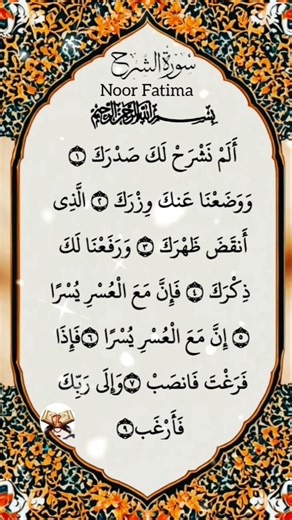 سورة الشرح
Noor Fatima
بسم الله الرحمن الرحيم
أَلَمْ نَشْرَحْ لَكَ صَدْرَكَ ١
وَوَضَعْنَا عَنكَ وِزْرَكَ ٢ الَّذِى
أَنقَضَ ظَهْرَكَ ٣ وَرَفَعْنَا لَكَ
ذِكْرَكَ ٤ فَإِنَّ مَعَ الْعُسْرِ يُسْرًا
٥ إِنَّ مَعَ الْعُسْرِ يُسْرًا ٦ فَإِذَا
فَرَغْتَ فَانصَبْ ٧ وَإِلَى رَبِّكَ
فَأَرْغَب ٩